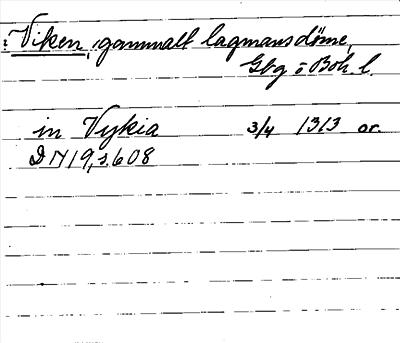 : Viken, gammalt lagmansdöme,
Gbg o Boh. l.
in Vykia 3/4 1313 or.
DN 19, s. 608